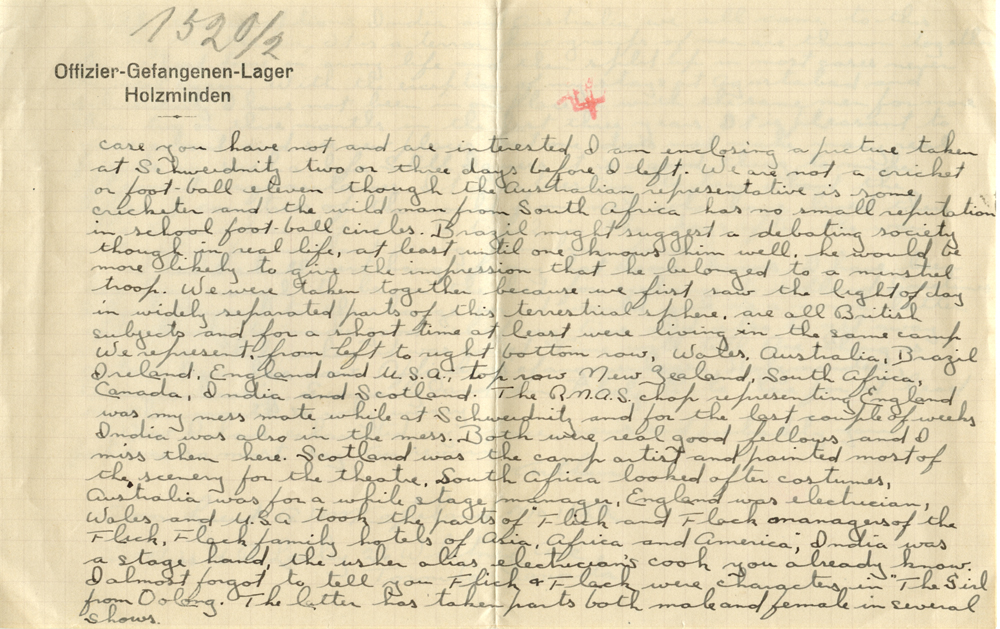 1520/2
Offizier-Gefangenen-Lager
Holzminden
4
care you have not and are interested I am enclosing a picture taken
at Schweidnitz two or three days before I left. We are not a cricket
or foot-ball eleven though the Australian representative is some
cricketer and the wild man from South Africa has no small reputation
in school foot-ball circles. Brazil might suggest a debating society
though in real life, at least until one knows him well, he would be
more likely to give the impression that he belonged to a minstrel
troop. We were taken together because we first saw the light of day
in widely separated parts of this terrestrial sphere, are all British
subjects and for a short time at least were living in the same camp
We represent, from left to right bottom row, Wales, Australia, Brazil
Ireland, England and U.S.A.; top row New Zealand, South Africa,
Canada, India and Scotland. The R.N.A.S. chap representing England
was my mess mate while at Schweidnitz and for the last couple of weeks
India was also in the mess. Both were real good fellows and I
miss them here. Scotland was the camp artist and painted most of
the scenery for the theatre, South Africa looked after costumes,
Australia was for a while stage manager, England was electrician,
Wales and U.S.A took the parts of "Flick and Flack managers of the
Flick, Flack family hotels of Asia, Africa and America", India was
a stage hand, the usher alias electrician's cook you already know.
I almost forgot to tell you Flick & Flack were characters in "The Girl
from Oolong. The latter has taken parts both male and female in several
shows.